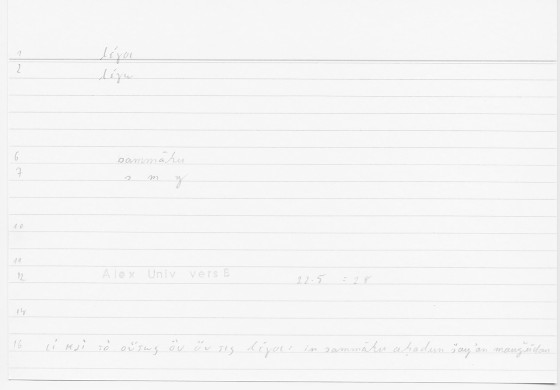 1 λέγοι
2 λέγω
6 sammāhu
7 s m y
10
11
12 Alex Univ vers 5 22.5 = 28
14
16 εἰ καὶ τὸ οὕτως ὂν ὄν τις λέγοι in sammāhu aḥadun šayʾan mauǧūdan